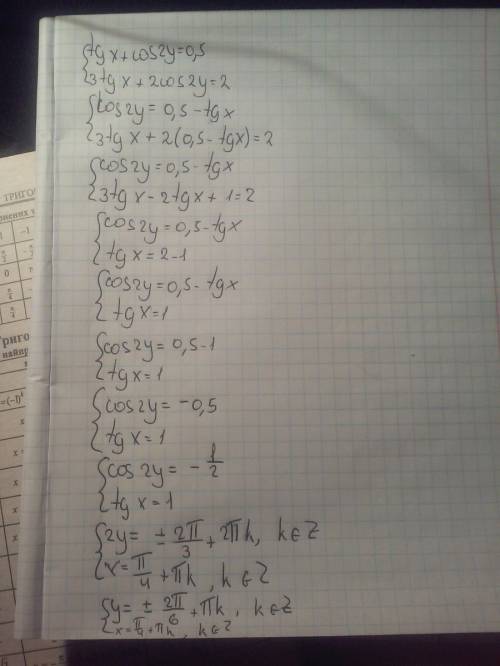 tg x + cos2y = 0,5
3tg x + 2cos2y = 2
cos2y = 0,5 - tgx
3tg x + 2(0,5 - tgx) = 2
cos2y = 0,5 - tgx
3tg x - 2tgx + 1 = 2
cos2y = 0,5 - tgx
tg x = 2 - 1
cos2y = 0,5 - tgx
tg x = 1
cos2y = 0,5 - 1
tg x = 1
cos2y = -0,5
tg x = 1
cos2y = -1/2
tg x = 1
2y = ± 2π/3 + 2πk, k∈Z
x = π/4 + πk, k∈Z
y = ± 2π/6 + πk, k∈Z
x = π/4 + πk, k∈Z
ТРИГО